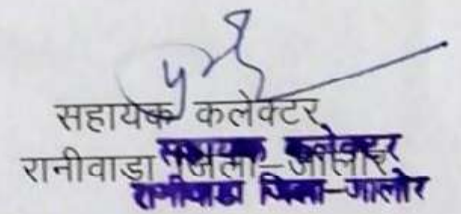 सहायक कलेक्टर
रानीवाड़ा जिला-जालोर
सहायक कलेक्टर
रानीवाडा जिला-जालोर